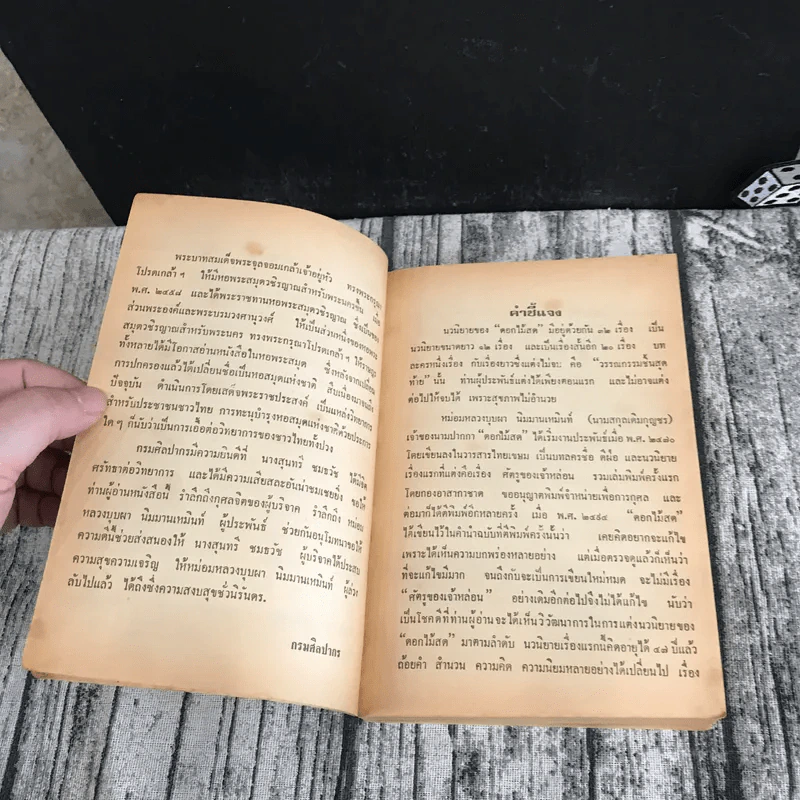 พระบาทสมเด็จพระจุลจอมเกล้าเจ้าอยู่หัว ทรงพระกรุณา
โปรดเกล้า ฯ ให้มีหอพระสมุดวชิรญาณสำหรับพระนครขึ้น เมื่อ
พ.ศ. ๒๔๕๘ และได้พระราชทานหอพระสมุดวชิรญาณ ซึ่งเป็นของ
ส่วนพระองค์และพระบรมวงศานุวงศ์ ให้เป็นส่วนหนึ่งของหอพระ
สมุดวชิรญาณสำหรับพระนคร ทรงพระกรุณาโปรดเกล้า ฯ ให้ราษฎร
ทั้งหลายได้มีโอกาสอ่านหนังสือในหอพระสมุด ซึ่งหลังจากเปลี่ยน
การปกครองแล้วได้เปลี่ยนชื่อเป็นหอสมุดแห่งชาติ สืบเนื่องมาจนถึง
ปัจจุบัน ดำเนินการโดยเสด็จพระราชประสงค์ เป็นแหล่งวิทยาการ
สำหรับประชาชนชาวไทย การทะนุบำรุงหอสมุดแห่งชาติด้วยประการ
ใด ๆ ก็นับว่าเป็นการเอื้อต่อวิทยาการของชาวไทยทั้งปวง
กรมศิลปากรมีความยินดีที่ นางสุนทรี ชมธวัช ได้มีจิต
ศรัทธาต่อวิทยาการ และได้มีความเสียสละอันน่าชมเชยยิ่ง ขอให้
ท่านผู้อ่านหนังสือนี้ รำลึกถึงกุศลจิตของผู้บริจาค รำลึกถึง หม่อม
หลวงบุบผา นิมมานเหมินท์ ผู้ประพันธ์ ช่วยกันอนุโมทนาขอให้
ความดีนี้ช่วยส่งสนองให้ นางสุนทรี ชมธวัช ผู้บริจาคได้ประสบ
ความสุขความเจริญ ให้หม่อมหลวงบุบผา นิมมานเหมินท์ ผู้ล่วง
ลับไปแล้ว ได้ถึงซึ่งความสงบสุขชั่วนิรันดร.
กรมศิลปากร
คำชี้แจง
นวนิยายของ “ดอกไม้สด” มีอยู่ด้วยกัน ๓๒ เรื่อง เป็น
นวนิยายขนาดยาว ๑๒ เรื่อง และเป็นเรื่องสั้นอีก ๒๐ เรื่อง บท
ละครหนึ่งเรื่อง กับเรื่องยาวซึ่งแต่งไม่จบ คือ “วรรณกรรมชิ้นสุด
ท้าย” นั้น ท่านผู้ประพันธ์แต่งได้เพียงตอนแรก และไม่อาจแต่ง
ต่อไปให้จบได้ เพราะสุขภาพไม่อำนวย
หม่อมหลวงบุบผา นิมมานเหมินท์ (นามสกุลเดิมกุญชร)
เจ้าของนามปากกา “ดอกไม้สด” ได้เริ่มงานประพันธ์เมื่อ พ.ศ. ๒๔๗๐
โดยเขียนลงในวารสารไทยเขษม เป็นบทละครชื่อ ดีฝ่อ และนวนิยาย
เรื่องแรกที่แต่งคือเรื่อง ศัตรูของเจ้าหล่อน รวมเล่มพิมพ์ครั้งแรก
โดยกองอาสากาชาด ขออนุญาตพิมพ์จำหน่ายเพื่อการกุศล และ
ต่อมาก็ได้ตีพิมพ์อีกหลายครั้ง เมื่อ พ.ศ. ๒๔๙๔ “ดอกไม้สด”
ได้เขียนไว้ในคำนำฉบับที่ตีพิมพ์ครั้งนั้นว่า เคยคิดอยากจะแก้ไข
เพราะได้เห็นความบกพร่องหลายอย่าง แต่เมื่อตรวจดูแล้วก็เห็นว่า
ที่จะแก้ไขมีมาก จนถึงกับจะเป็นการเขียนใหม่หมด จะไม่มีเรื่อง
“ศัตรูของเจ้าหล่อน” อย่างเดิมอีกต่อไปจึงไม่ได้แก้ไข นับว่า
เป็นโชคดีที่ท่านผู้อ่านจะได้เห็นวิวัฒนาการในการแต่งนวนิยายของ
“ดอกไม้สด” มาตามลำดับ นวนิยายเรื่องแรกนี้คิดอายุได้ ๔๗ ปีแล้ว
ถ้อยคำ สำนวน ความคิด ความนิยมหลายอย่างได้เปลี่ยนไป เรื่อง